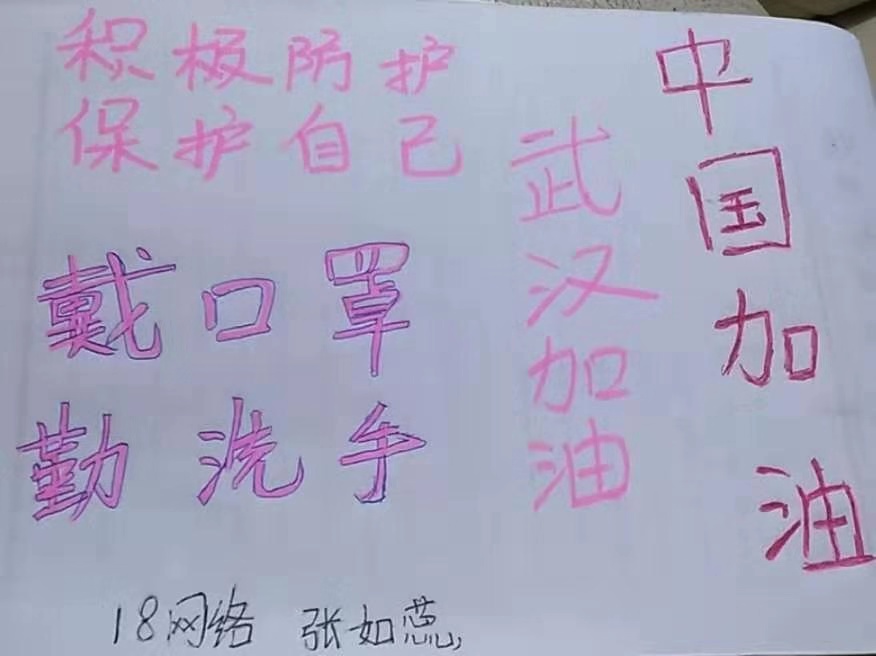 积极防护
保护自己
戴口罩
勤洗手
武汉加油
中国加油
18网络 张如蕊